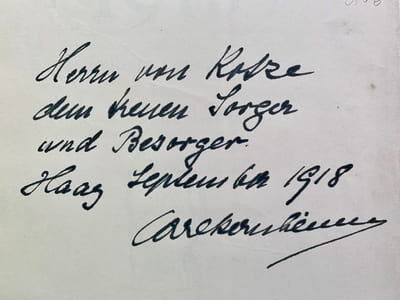 Herrn von Kotze
dem treuen Sorger
und Besorger.
Haag September 1918